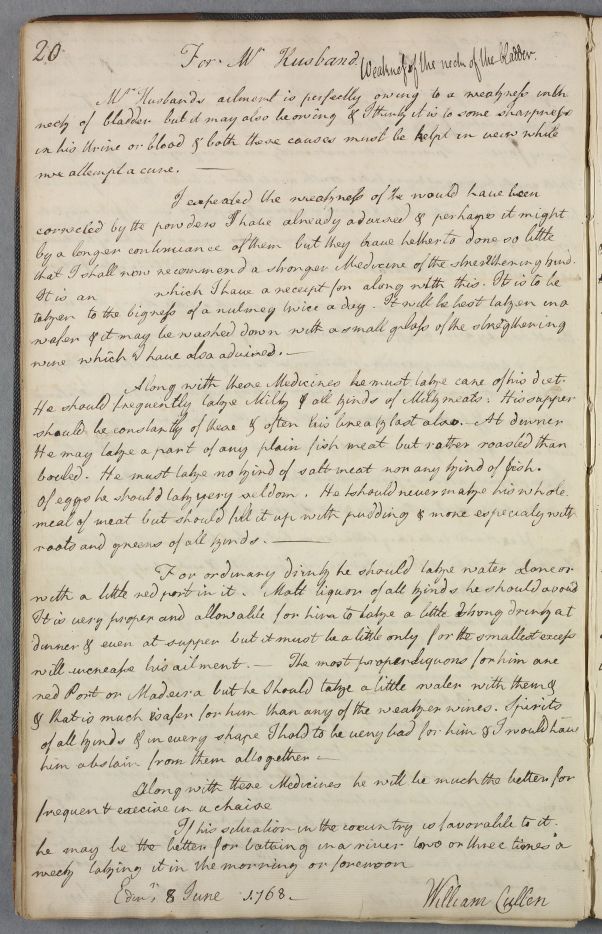 20
For Mr Husband. Weakness of the neck of the bladder.
Mr Husbands ailment is perfectly owing to a weakness in the
neck of bladder but it may also be owing & I think it is to some sharpness
in his Urine or blood & both these causes must be kept in view while
we attempt a cure. —
I expected the weakness of the would have been
corrected by the powders I have already adwised & perhaps it might
by a longer continuance of them but they have hetherto done so little
that I shall now recommend a stronger Medicine of the strengthening kind.
It is an which I have a receipt for along with this. It is to be
taken to the bigness of a nutmeg twice a day. It will be best taken in a
wafer & it may be washed down with a small glass of the strengthening
wine which I have also adwised. —
Along with these Medicines he must take care of his diet.
He should frequently take Milk & all kinds of Milk meats. His supper
should be constantly of these & often his breakfast also. At dinner
He may take a part of any plain fish meat but rather roasted than
boiled. He must take no kind of salt meat nor any kind of fish.
Of eggs he should take very seldom. He should never make his whole
meal of meat but should fill it up with pudding & more especialy with
roots and greens of all kinds. —
For ordinary drink he should take water alone or
with a little red port in it. Malt liquor of all kinds he should avoid
It is very proper and allowable for him to take a little strong drink at
dinner & even at supper but it must be a little only for the smallest excess
will increase his ailment. — The most proper liquors for him are
red Port or Madeira but he Should take a little water with them &
& that is much safer for him than any of the weaker wines. Spirits
of all kinds & in every shape I hold to be very bad for him & I would have
him abstain from them altogether —
Along with these Medicines he will be much the better for
frequent execise in a chaise
If his situation in the country is favorable to it
he may be the better for bathing in a river two or three times a
week taking it in the morning or forenoon
Edinr. 8 June 1768. — William Cullen